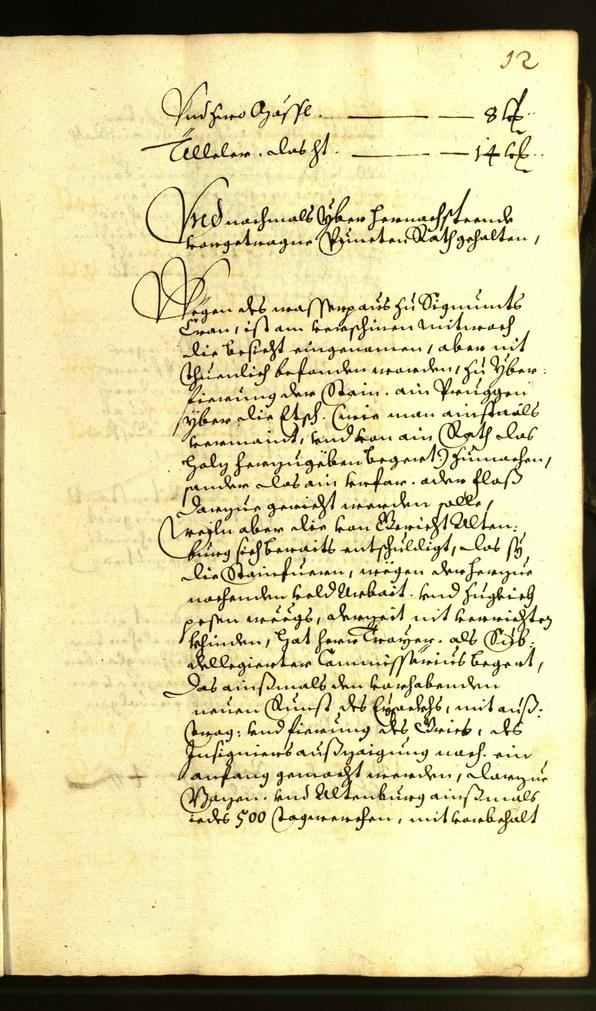 12
Vnd zwo Gässl. — 8 lb
Alleler. das ht. — 14 lb
Vnd nochmals yber hernachsteende
vorgetragne Puncten Rath gehalten,
Wegen des wasserpaus zu Sigmunts
Cron, ist am verschinen Mitwoch
die besicht eingenomen, aber nit
thuenlich befonden worden, zu yber:
fierung der Stain. ain Pruggen
yber die Etsch. (wie man ainsmals
vermaint, vnd von ain Rath das
Holz herzugeben begert) zumachen,
sonder das ain vrfar. oder floß
darzue gericht werden solle,
weiln aber die von Gericht Alten:
burg sich beraits entschuldigt, das sy
die Stainfuern, wegen der herzue
nochenden veld Arbait. vnd zugleich
pesen weegs, derzeit nit verrichten
khinden, hat herr Troyer. als Sub:
dellegierter Commissarius begert,
das ainßmals den vorhabenden
neuen Runst des Eysackhs, mit auß:
trag: vnd fierung des Gries, des
Insigniers außzaigung nach. ein
anfang gemacht werden, darzue
Bozen. vnd Altenburg ainßmals
iedes 500 tagwerchen, mit vorbehalt